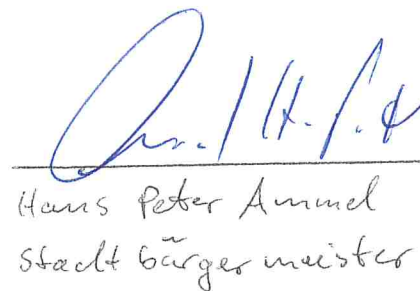 Hans Peter Ammel
Stadtbürgermeister